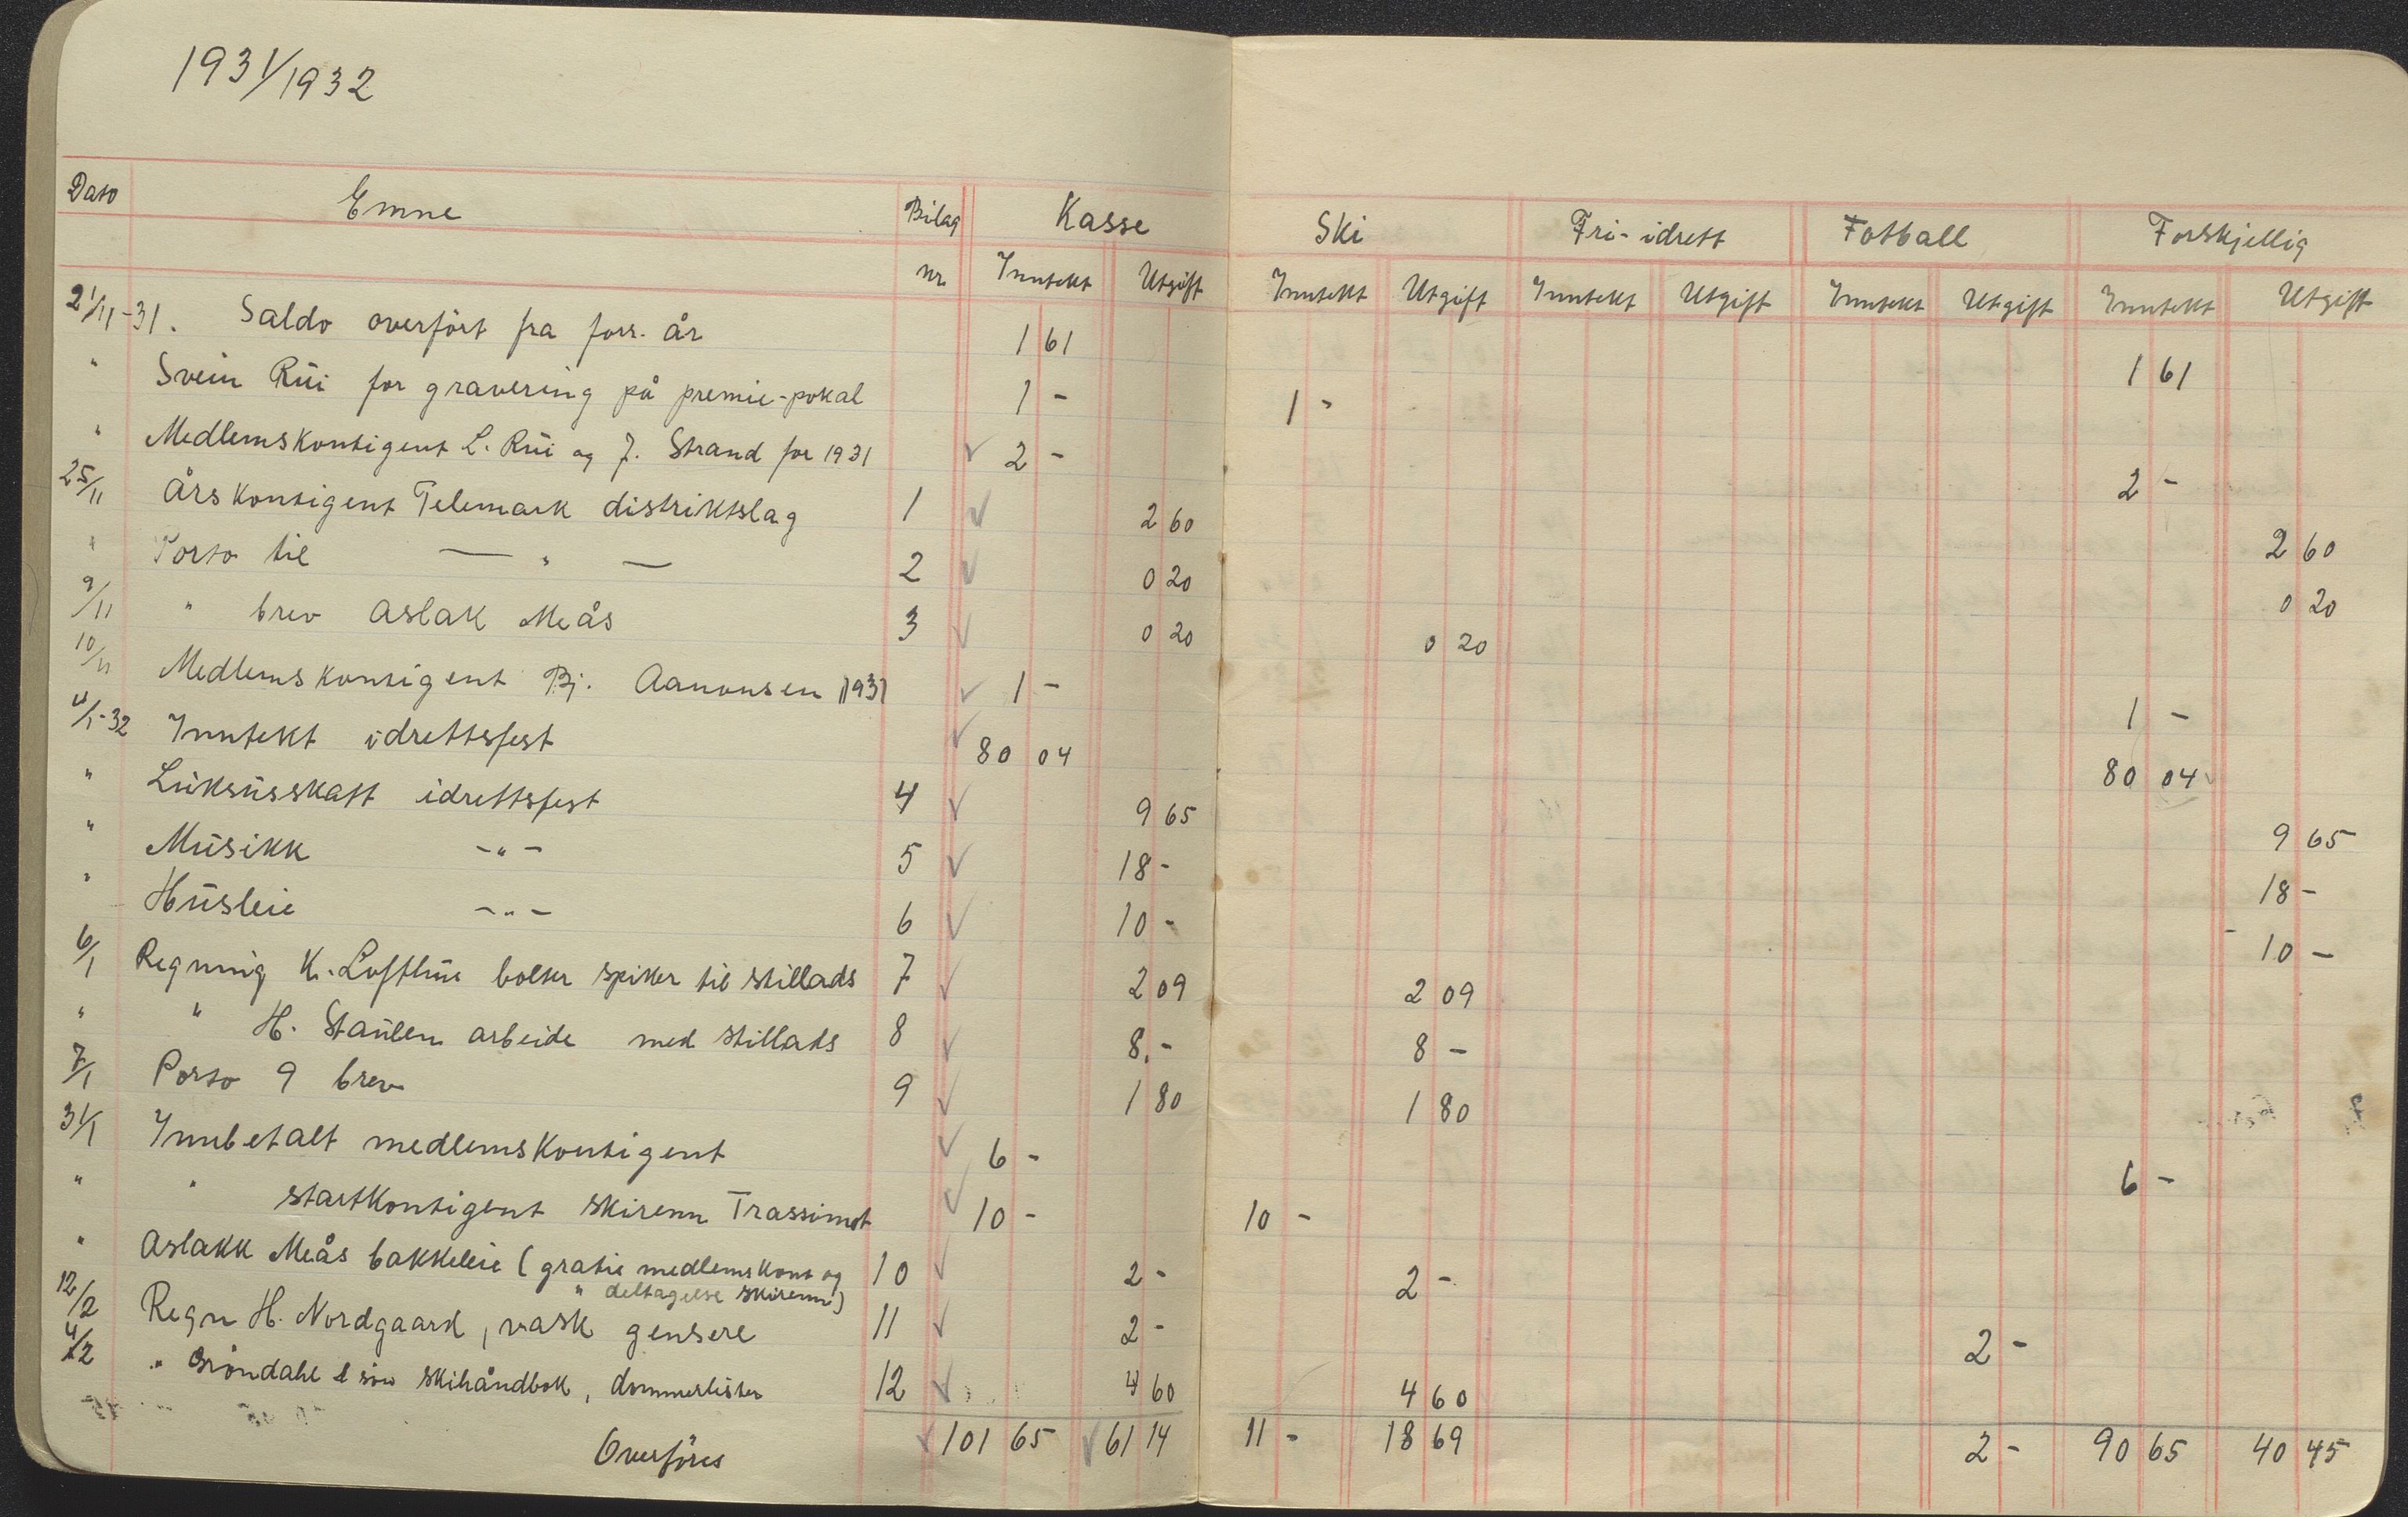 1931/1932
Dato Emne Bilag nr. Kasse Inntekt Utgift Ski Inntekt Utgift Fri-idrett Inntekt Utgift Fotball Inntekt Utgift Forskjellig Inntekt Utgift
21/11-31. Saldo overført fra forr. år 1 61 1 61
" Svein Rui for gravering på premie-pokal 1 - 1 -
" Medlemskontigent L. Rui og J. Strand for 1931 ✓ 2 - 2 -
25/11 Årskontigent Telemark distriktslag 1 ✓ 2 60 2 60
" Porto til — " — 2 ✓ 0 20 0 20
9/11 " brev Aslak Meås 3 ✓ 0 20 0 20
10/11 Medlemskontigent Bj. Aanonsen 1931 ✓ 1 - 1 -
4/1-32 Inntekt idrettsfest ✓ 80 04 80 04
" Luksusskatt idrettsfest 4 ✓ 9 65 9 65
" Musikk -"- 5 ✓ 18 - 18 -
" Husleie -"- 6 ✓ 10 - 10 -
6/1 Regning K. Lofthus bolter spiker til stillads 7 ✓ 2 09 2 09
" " H. Staulen arbeide med stillads 8 ✓ 8.- 8 -
7/1 Porto 9 brev 9 ✓ 1 80 1 80
31/1 Innbetalt medlemskontigent ✓ 6 - 6 -
" " startkontigent skirenn Trassimot ✓ 10 - 10 -
" Aslakk Meås bakkeleie (gratis medlemskont og 10 ✓ 2 - 2 -
" deltagelse skirenn)
12/2 Regn H. Nordgaard, vask gensere 11 ✓ 2 - 2 -
4/2 " Grøndahl & søn skihåndbok, dommerlister 12 ✓ 4 60 4 60
Overføres ✓ 101 65 ✓ 61 14 11 - 18 69 2 - 90 65 40 45